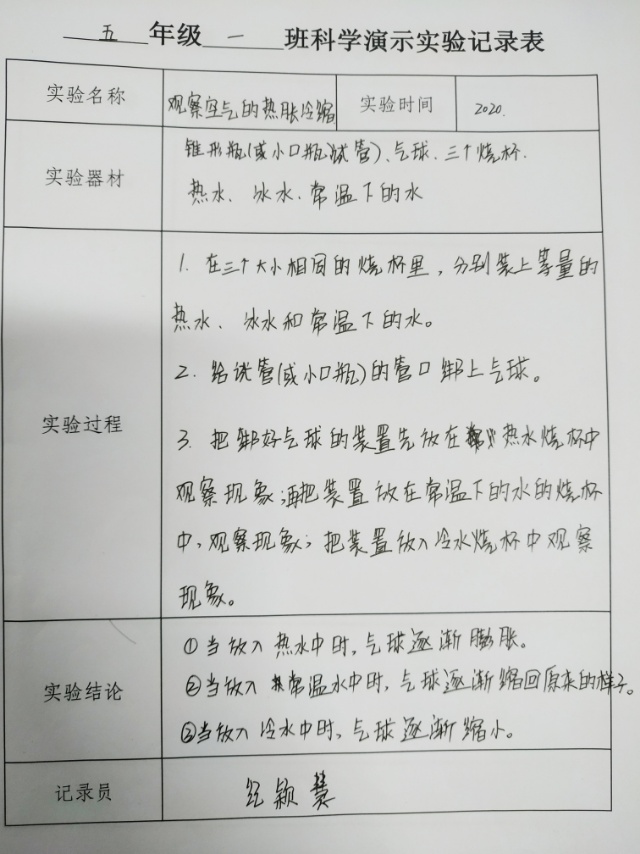 五年级一班科学演示实验记录表
实验名称 观察空气的热胀冷缩 实验时间 2020.
实验器材
锥形瓶(或小口瓶试管)、气球、三个烧杯.
热水、冰水、常温下的水
实验过程
1. 在三个大小相同的烧杯里，分别装上等量的
热水、冰水和常温下的水。
2. 给试管(或小口瓶)的管口绑上气球。
3. 把绑好气球的装置先放在热水烧杯中
观察现象;再把装置放在常温下的水的烧杯
中,观察现象;把装置放入冷水烧杯中观察
现象。
实验结论
①当放入热水中时,气球逐渐膨胀。
②当放入常温水中时,气球逐渐缩回原来的样子。
③当放入冷水中时,气球逐渐缩小。
记录员 颖慧